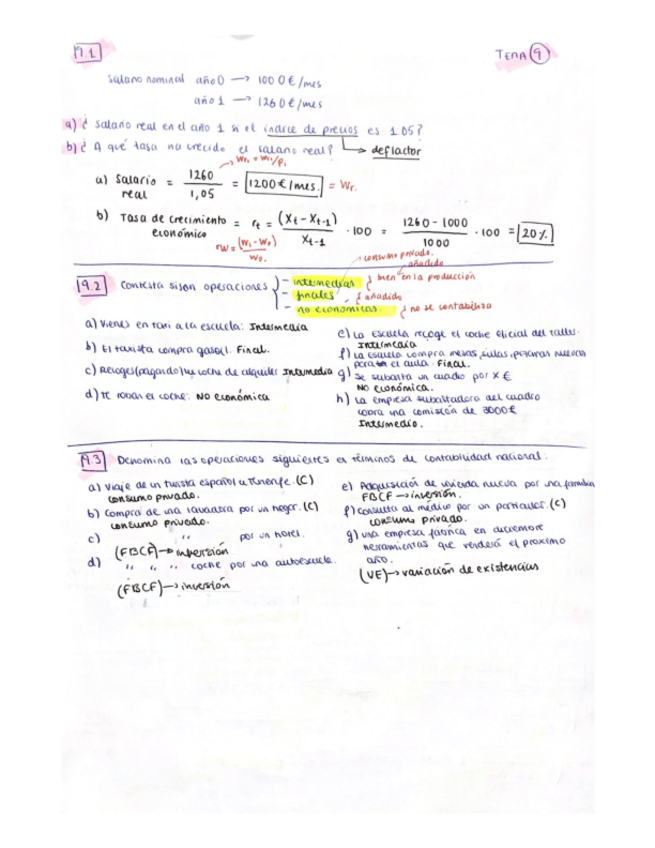 9.1
TEMA 9
Salario nominal año 0 → 1000 €/mes
año 1 → 1260 €/mes
a) ¿ Salario real en el año 1 si el índice de precios es 1.05?
b) ¿ A qué tasa ha crecido el salario real? → deflactor
a) Salario real = 1260 / 1,05 = 1200 €/mes. = Wr.
b) Tasa de crecimiento económico = rt = (Xt - Xt-1) / Xt-1 · 100 = 1260 - 1000 / 1000 · 100 = 20%
rW = (W1 - W0) / W0.
consumo privado.
añadido
9.2 Contesta si son operaciones
- intermedias } bien en la producción
- finales } añadido
- no económicas. } no se contabiliza
a) Vienes en taxi a la escuela: Intermedia
b) El taxista compra gasoil. Final.
c) Recoges (pagando) tu coche de alquiler Intermedia
d) Te roban el coche: NO económica
e) La escuela recoge el coche oficial del taller.
Intermedia
f) La escuela compra mesas, sillas, persianas nuevas
para el aula. Final.
g) Se subasta un cuadro por X €
NO económica.
h) La empresa subastadora del cuadro
cobra una comisión de 3000 €
Intermedio.
9.3 Denomina las operaciones siguientes en términos de contabilidad nacional.
a) Viaje de un turista español a Tenerife. (C)
consumo privado.
b) Compra de una lavadora por un hogar. (C)
consumo privado.
c) " por un hotel.
(FBCF) → inversión
d) " " " coche por una autoescuela.
(FBCF) → inversión
e) Adquisición de vivienda nueva por una familia
FBCF → inversión.
f) consulta al médico por un particular. (C)
consumo privado.
g) una empresa fabrica en diciembre
herramientas que venderá el próximo
año.
(VE) → variación de existencias